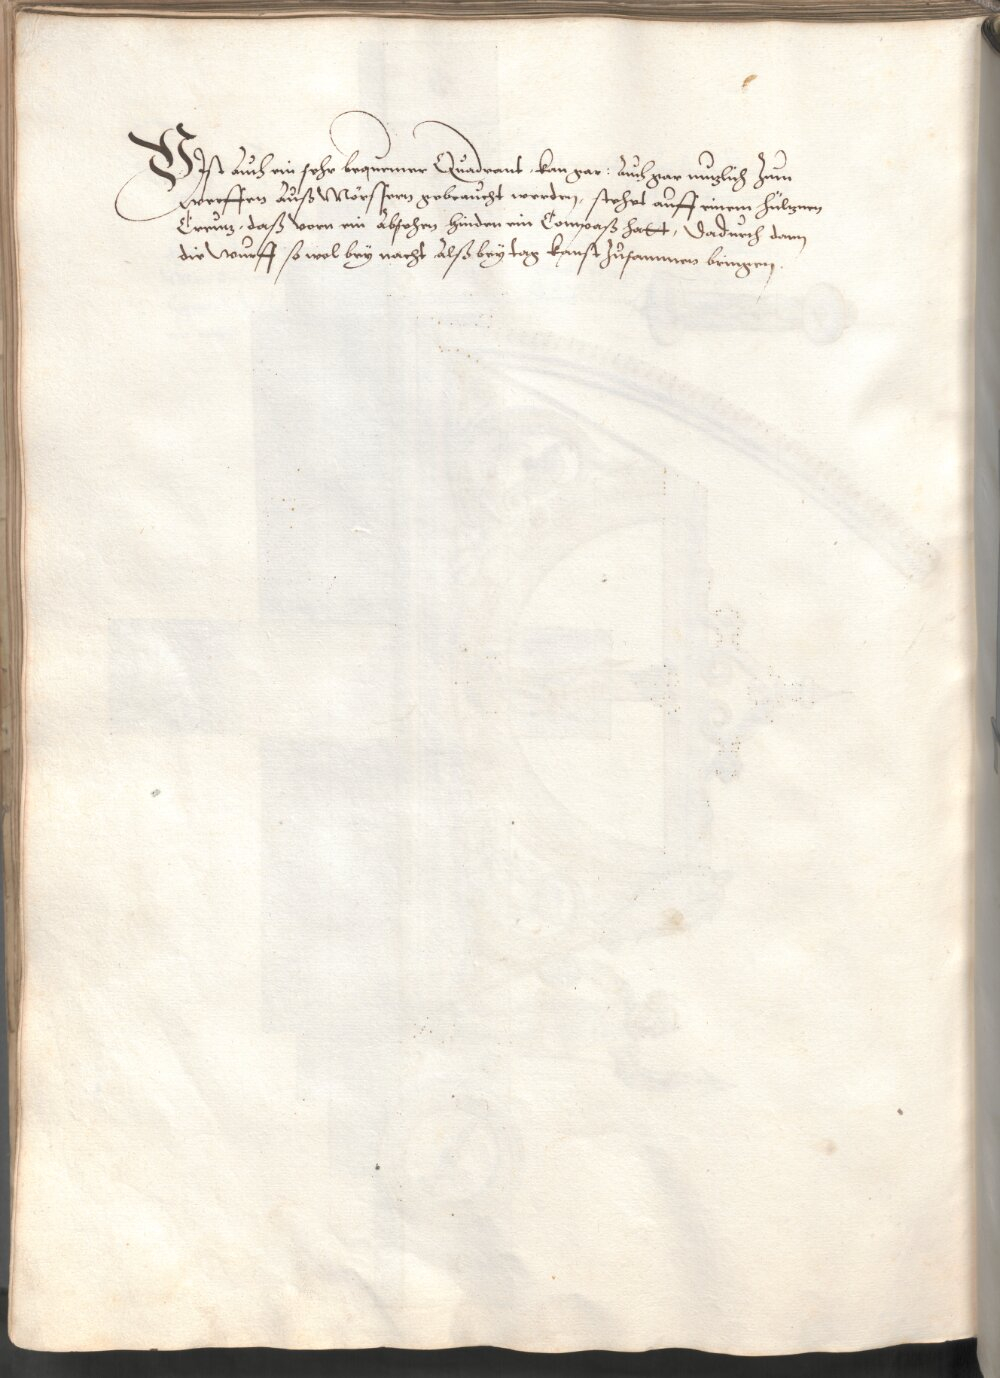 Ist auch ein sehr bequemer Quadrant, kan gar: auch gar nutzlich zum
werffen auß Mörssern gebraucht werden, stehet auff einem hültznen
Creutz, daß vorn ein Absehen hinden ein Compaß hatt, Dadurch dann
die Wurff so wol bey nacht Alß bey tag kanst zusammen bringen.